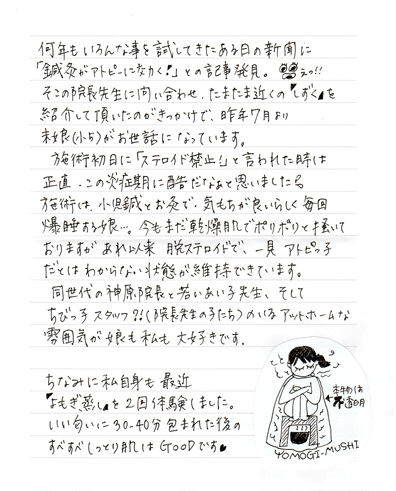 何年もいろんな事を試してきたある日の新聞に
「鍼灸がアトピーに効く!」との記事発見。えっ!!
そこの院長先生に問い合わせ、たまたま近くの『しずく』を
紹介して頂いたのがきっかけで、昨年7月より
末娘(小5)がお世話になっています。
施術初日に「ステロイド禁止!」と言われた時は
正直、この炎症期に酷だなぁと思いましたら
施術は、小児鍼とお灸で、気もちが良いらしく毎回
爆睡する娘…。今もまだ乾燥肌でポリポリと掻いて
おりますがあれ以来 脱ステロイドで、一見 アトピっ子
だとはわからない状態が維持できています。
同世代の神原院長と若いあい子先生、そして
ちびっ子スタッフ?!(院長先生の子たち)のいるアットホームな
雰囲気が娘も私も大好きです。
ちなみに私自身も最近
『よもぎ蒸し』を2回体験しました。
いい匂いに30-40分包まれた後の
すべすべしっとり肌はGOODです
本物は
不透明
YOMOGI-MUSHI